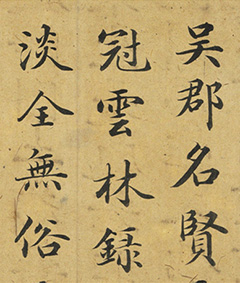 吳郡名賢
冠雲林錄
淡全無俗